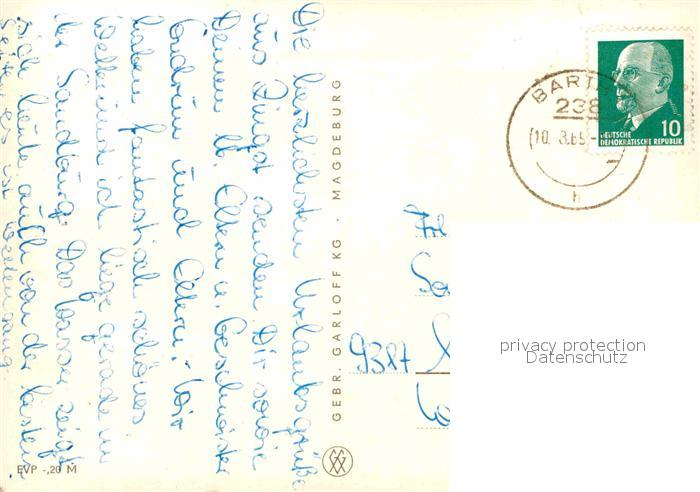 Die herzlichsten Urlaubsgrüße
aus Zingst senden Dir sowie
Deinen lb. Eltern u. Geschwister
und Eltern. Wir
haben fantastisch schönes
Wetter und ich liege gerade in
der Sandburg. Das Wasser zeigt
sich heute auch von der besten
Seite, es ist
GEBR. GARLOFF KG · MAGDEBURG
EVP -,20 M
BART
238
10. 8.69
h
10
DEUTSCHE
DEMOKRATISCHE REPUBLIK
9387
privacy protection
Datenschutz